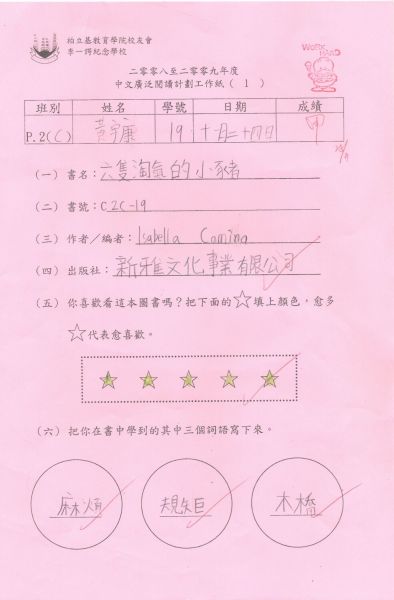 柏立基教育學院校友會
李一諤紀念學校
WORK HARD
二零零八至二零零九年度
中文廣泛閱讀計劃工作紙（1）
班別 姓名 學號 日期 成績
P.2(C) 黃宇康 19 十月二十四日 甲
（一）書名：六隻淘氣的小豬
（二）書號：C2C-19
（三）作者／編者：Isabella Comino
（四）出版社：新雅文化事業有限公司
（五）你喜歡看這本圖書嗎？把下面的☆填上顏色，愈多
☆代表愈喜歡。
（六）把你在書中學到的其中三個詞語寫下來。
麻煩 規矩 木橋